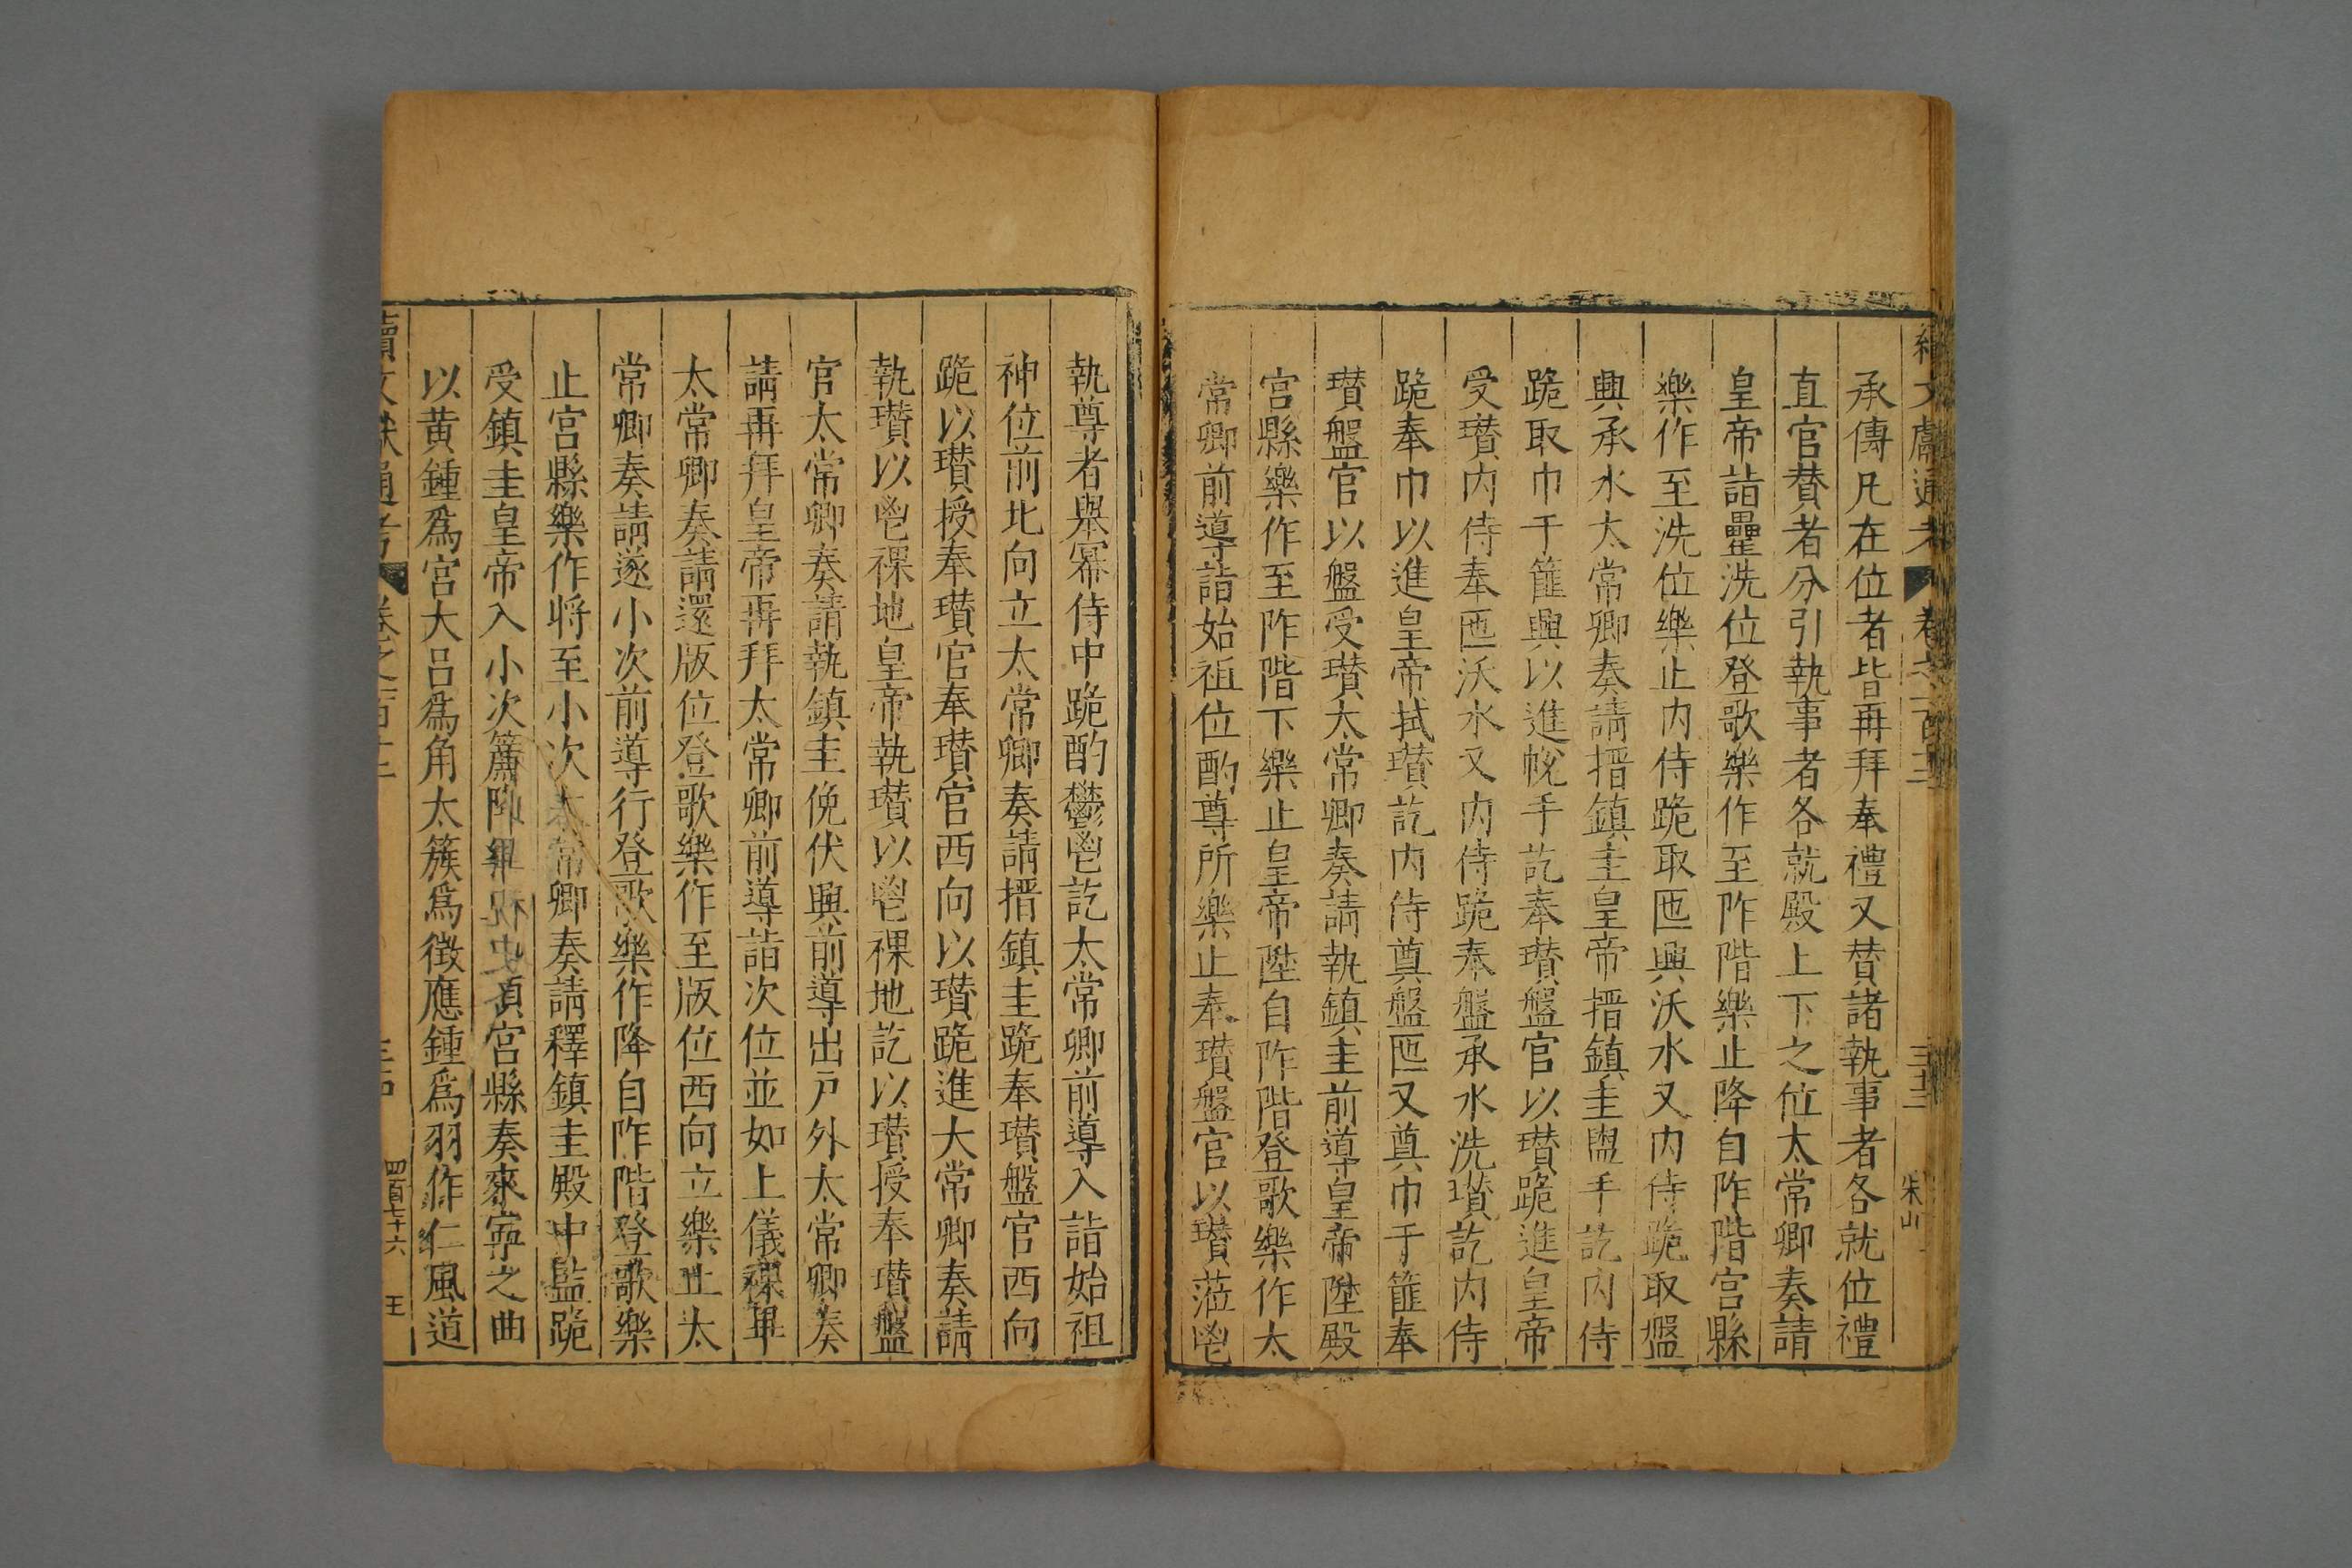 文獻通考 卷之一百三
承傳凡在位者皆再拜奉禮又賛諸執事者各就位禮
直官賛者分引執事者各就殿上下之位太常卿奏請
皇帝詣罍洗位登歌樂作至阼階樂止降自阼階宮縣
樂作至洗位樂止内侍跪取匜興沃水又内侍跪取盤
興承水太常卿奏請搢鎮圭皇帝搢鎮圭盥手訖内侍
跪取巾于篚興以進帨手訖奉瓚盤官以瓚跪進皇帝
受瓚内侍奉匜沃水又内侍跪奉盤承水洗瓚訖内侍
跪奉巾以進皇帝拭瓚訖内侍奠盤匜又奠巾于篚奉
瓚盤官以盤受瓚太常卿奏請執鎮圭前導皇帝陞殿
宮縣樂作至阼階下樂止皇帝陞自阼階登歌樂作太
常卿前導詣始祖位酌尊所樂止奉瓚盤官以瓚蒞鬯
執尊者舉冪侍中跪酌鬱鬯訖太常卿前導入詣始祖
神位前北向立太常卿奏請搢鎮圭跪奉瓚盤官西向
跪以瓚授奉瓚官奉瓚官西向以瓚跪進大常卿奏請
執瓚以鬯祼地皇帝執瓚以鬯祼地訖以瓚授奉瓚盤
官太常卿奏請執鎮圭俛伏興前導出戶外太常卿奏
請再拜皇帝再拜太常卿前導詣次位並如上儀祼畢
太常卿奏請還版位登歌樂作至版位西向立樂止太
常卿奏請還小次前導行登歌樂作降自阼階登歌樂
止宮縣樂作将至小次太常卿奏請釋鎮圭殿中監跪
受鎮圭皇帝入小次簾降樂止宮縣奏來寧之曲
以黄鍾爲宮大吕爲角太簇爲徴應鍾爲羽作仁風道
續文獻通考 卷之一百三 四百七十六 王